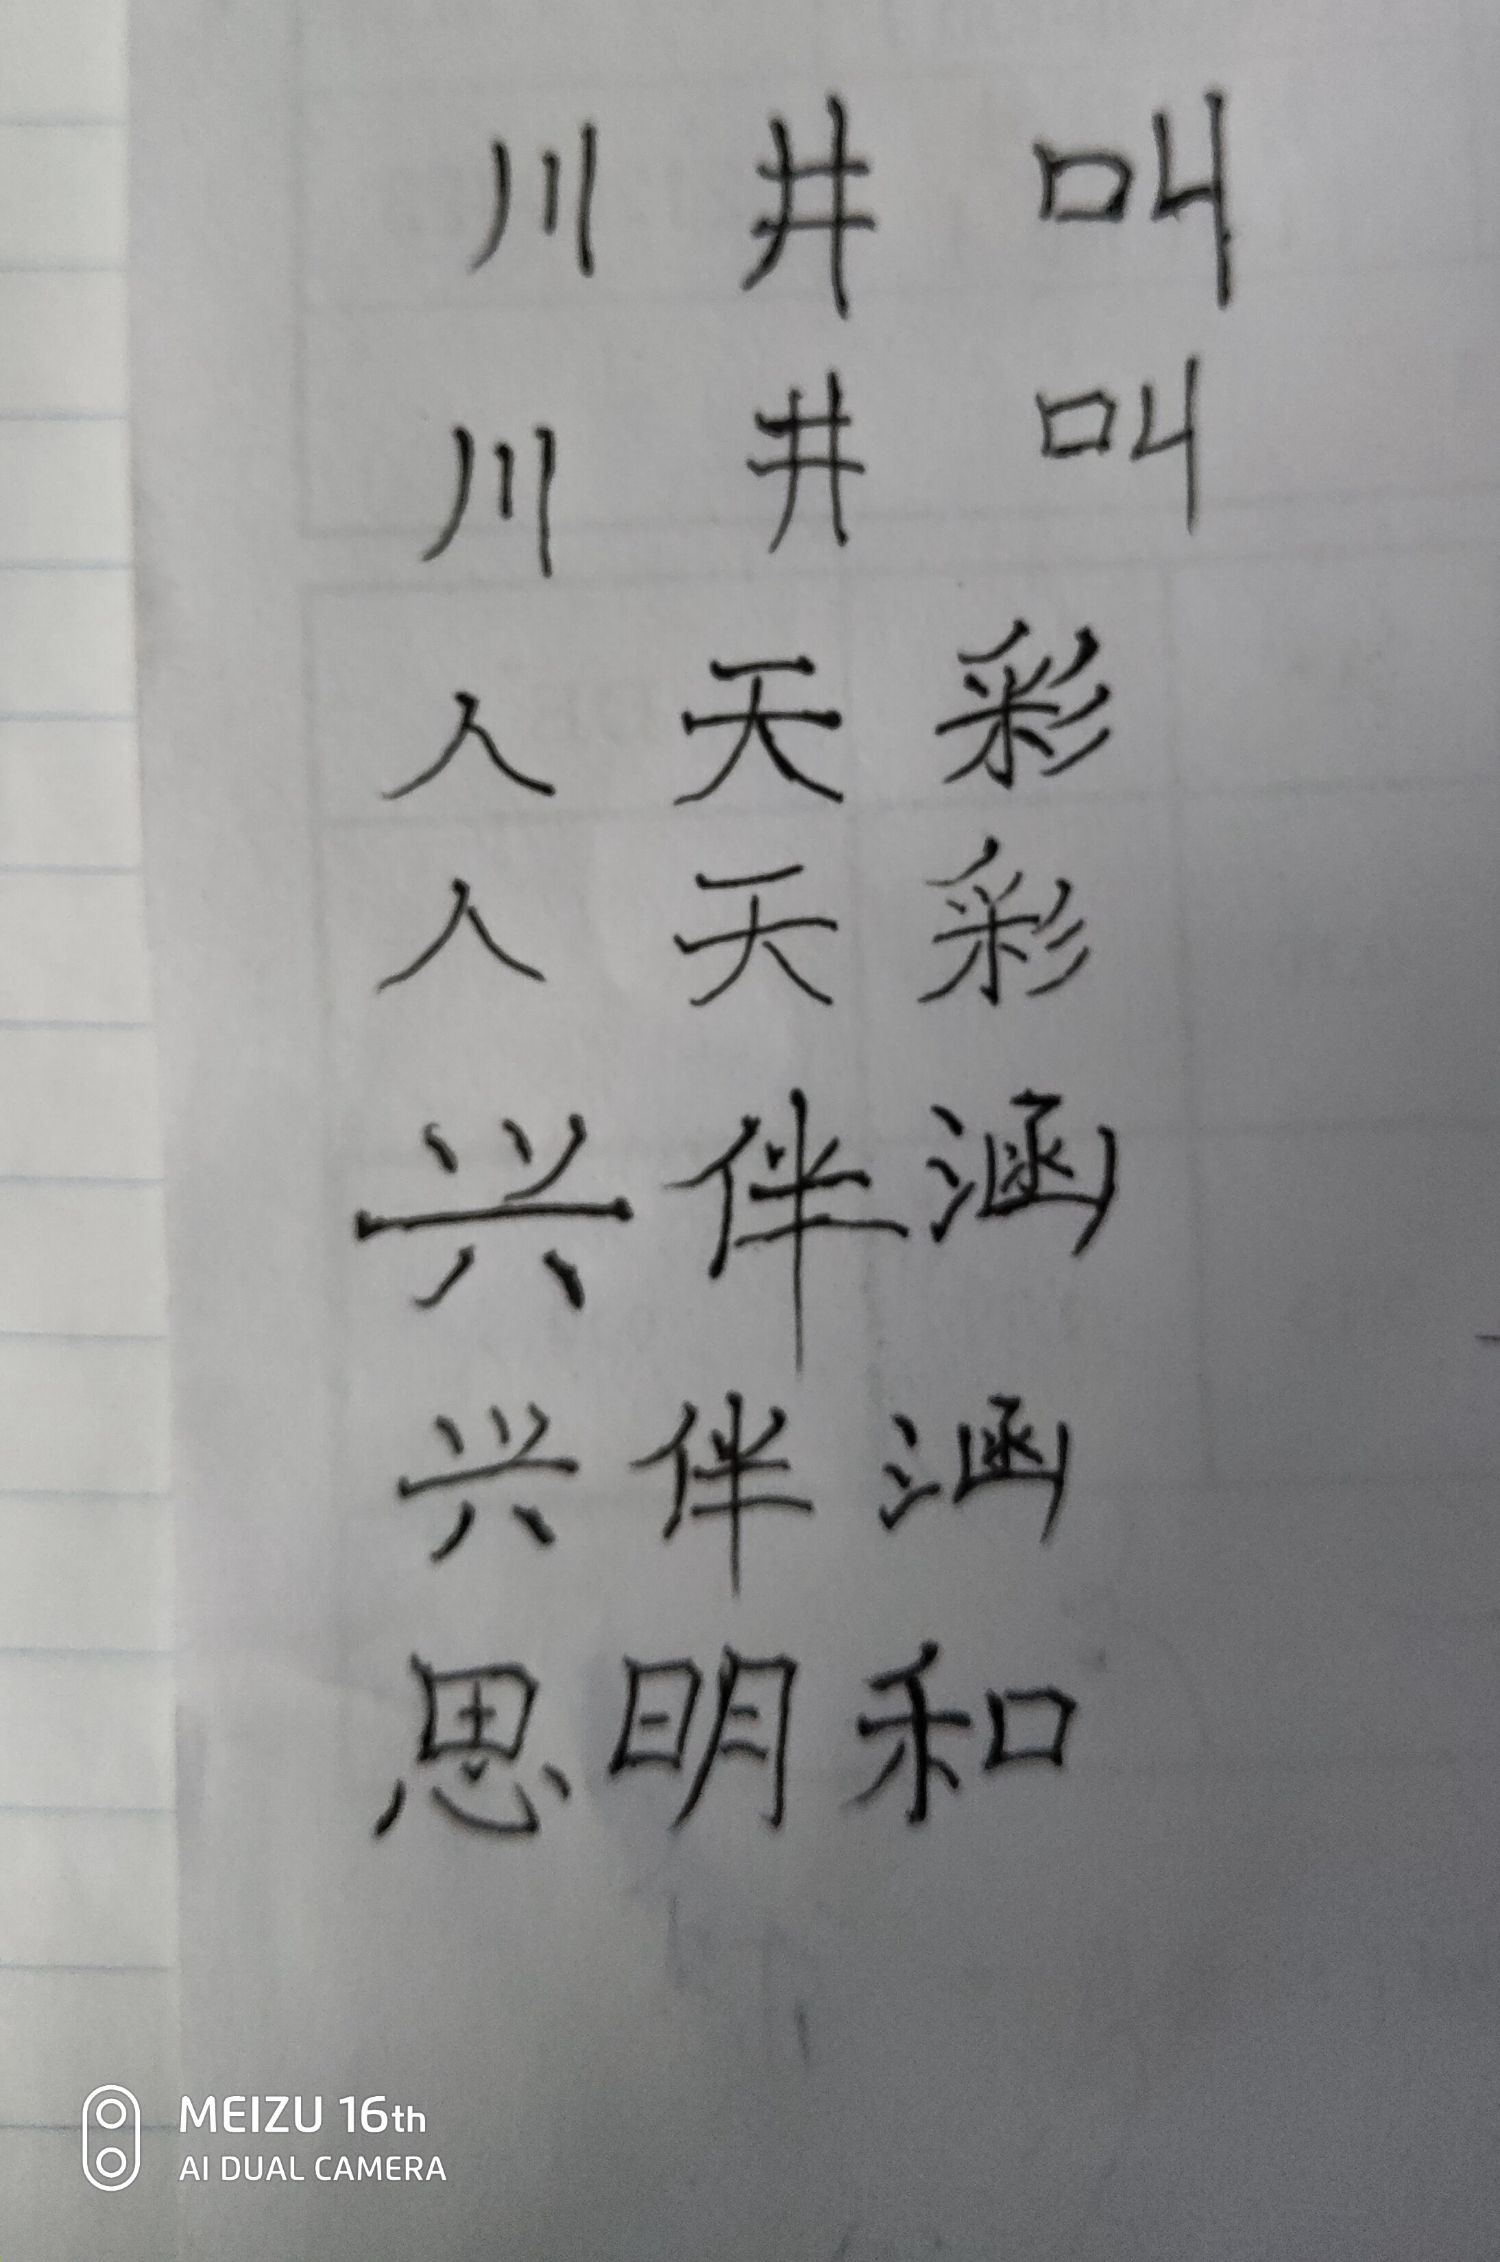 川 井 叫
川 井 叫
人 天 彩
人 天 彩
兴 伴 涵
兴 伴 涵
思 明 和
MEIZU 16th
AI DUAL CAMERA